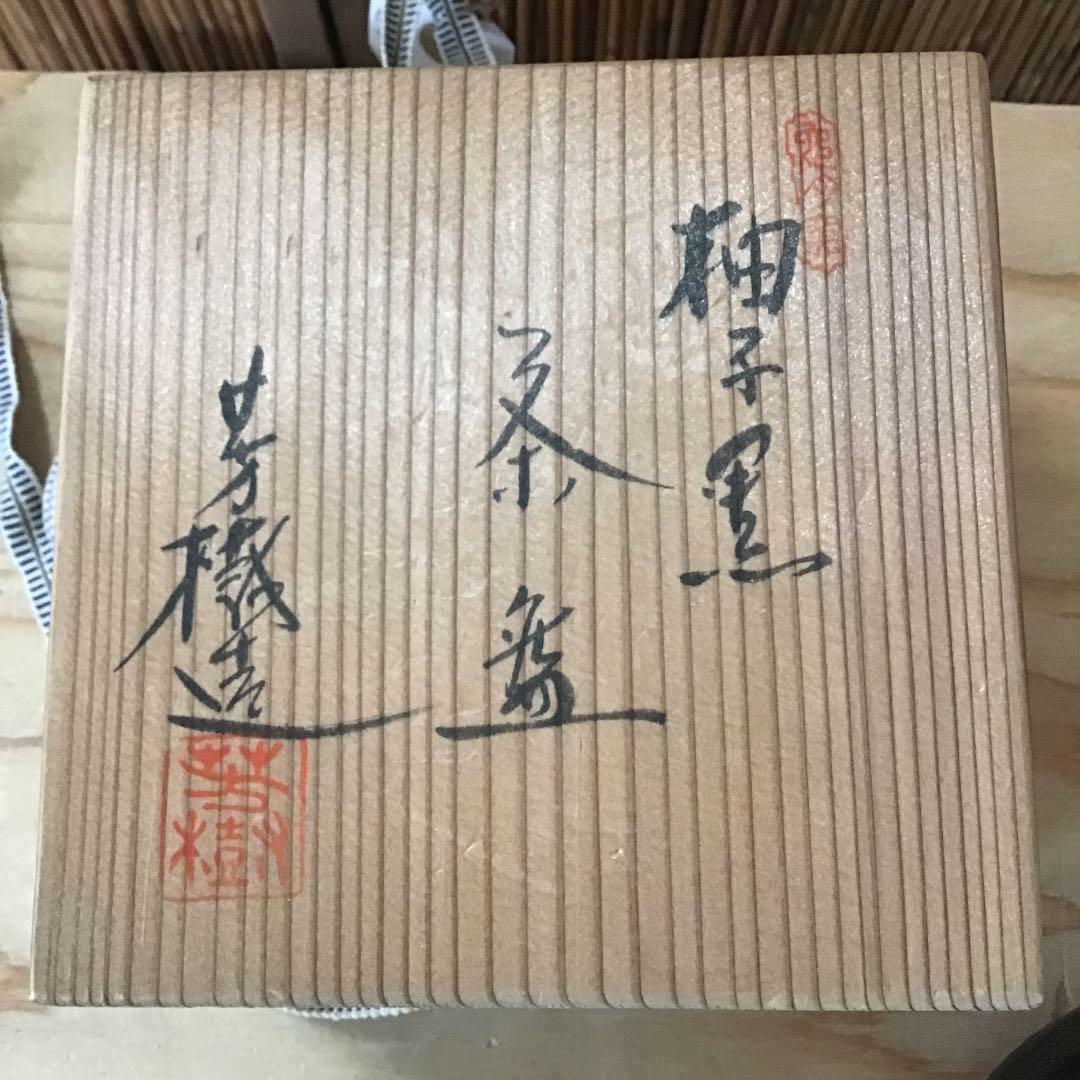 柚子黒
茶盌
芳樹造
芳樹